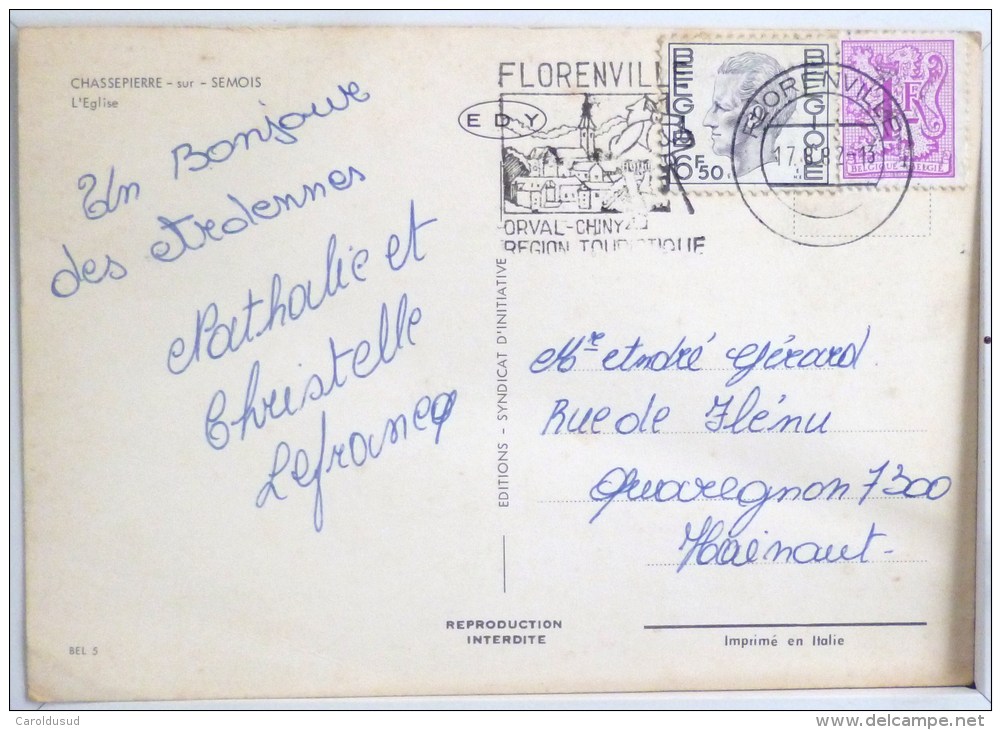 CHASSEPIERRE - sur - SEMOIS
L'Eglise
Un Bonjour
des Ardennes
Nathalie et
Christelle
Lefrancq
FLORENVILLE
EDY
ORVAL-CHINY
REGION TOURISTIQUE
BELGIE
BELGIQUE
6F50
FLORENVILLE
17.8.82-13
BELGIQUE BELGIË
EDITIONS - SYNDICAT D'INITIATIVE
Mr André Gérard
Rue de Flénu
Quaregnon 7300
Hainaut-
REPRODUCTION
INTERDITE
Imprimé en Italie
BEL 5
Caroldusud
delcampe.net